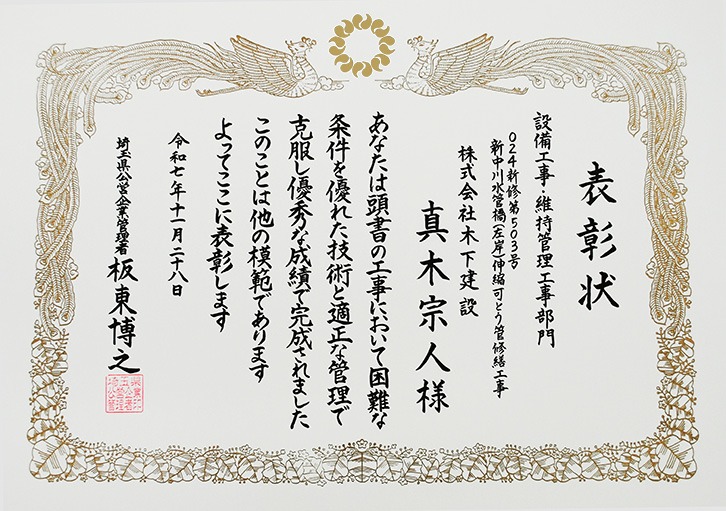 表彰状
設備工事・維持管理工事部門
024新修第503号
新中川水管橋(左岸)伸縮可とう管修繕工事
株式会社木下建設
真木宗人様
あなたは頭書の工事において困難な
条件を優れた技術と適正な管理で
克服し優秀な成績で完成されました
このことは他の模範であります
よってここに表彰します
令和七年十一月二十八日
埼玉県公営企業管理者
板東博之